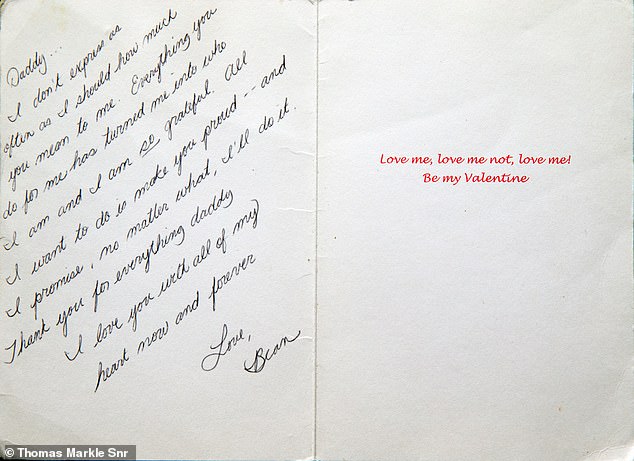 Daddy...
I don't express as
often as I should how much
you mean to me. Everything you
do for me has turned me into who
I am and I am so grateful. All
I want to do is make you proud -- and
I promise, no matter what, I'll do it.
Thank you for everything daddy
I love you with all of my
heart now and forever
Love,
Bean
Love me, love me not, love me!
Be my Valentine
© Thomas Markle Snr